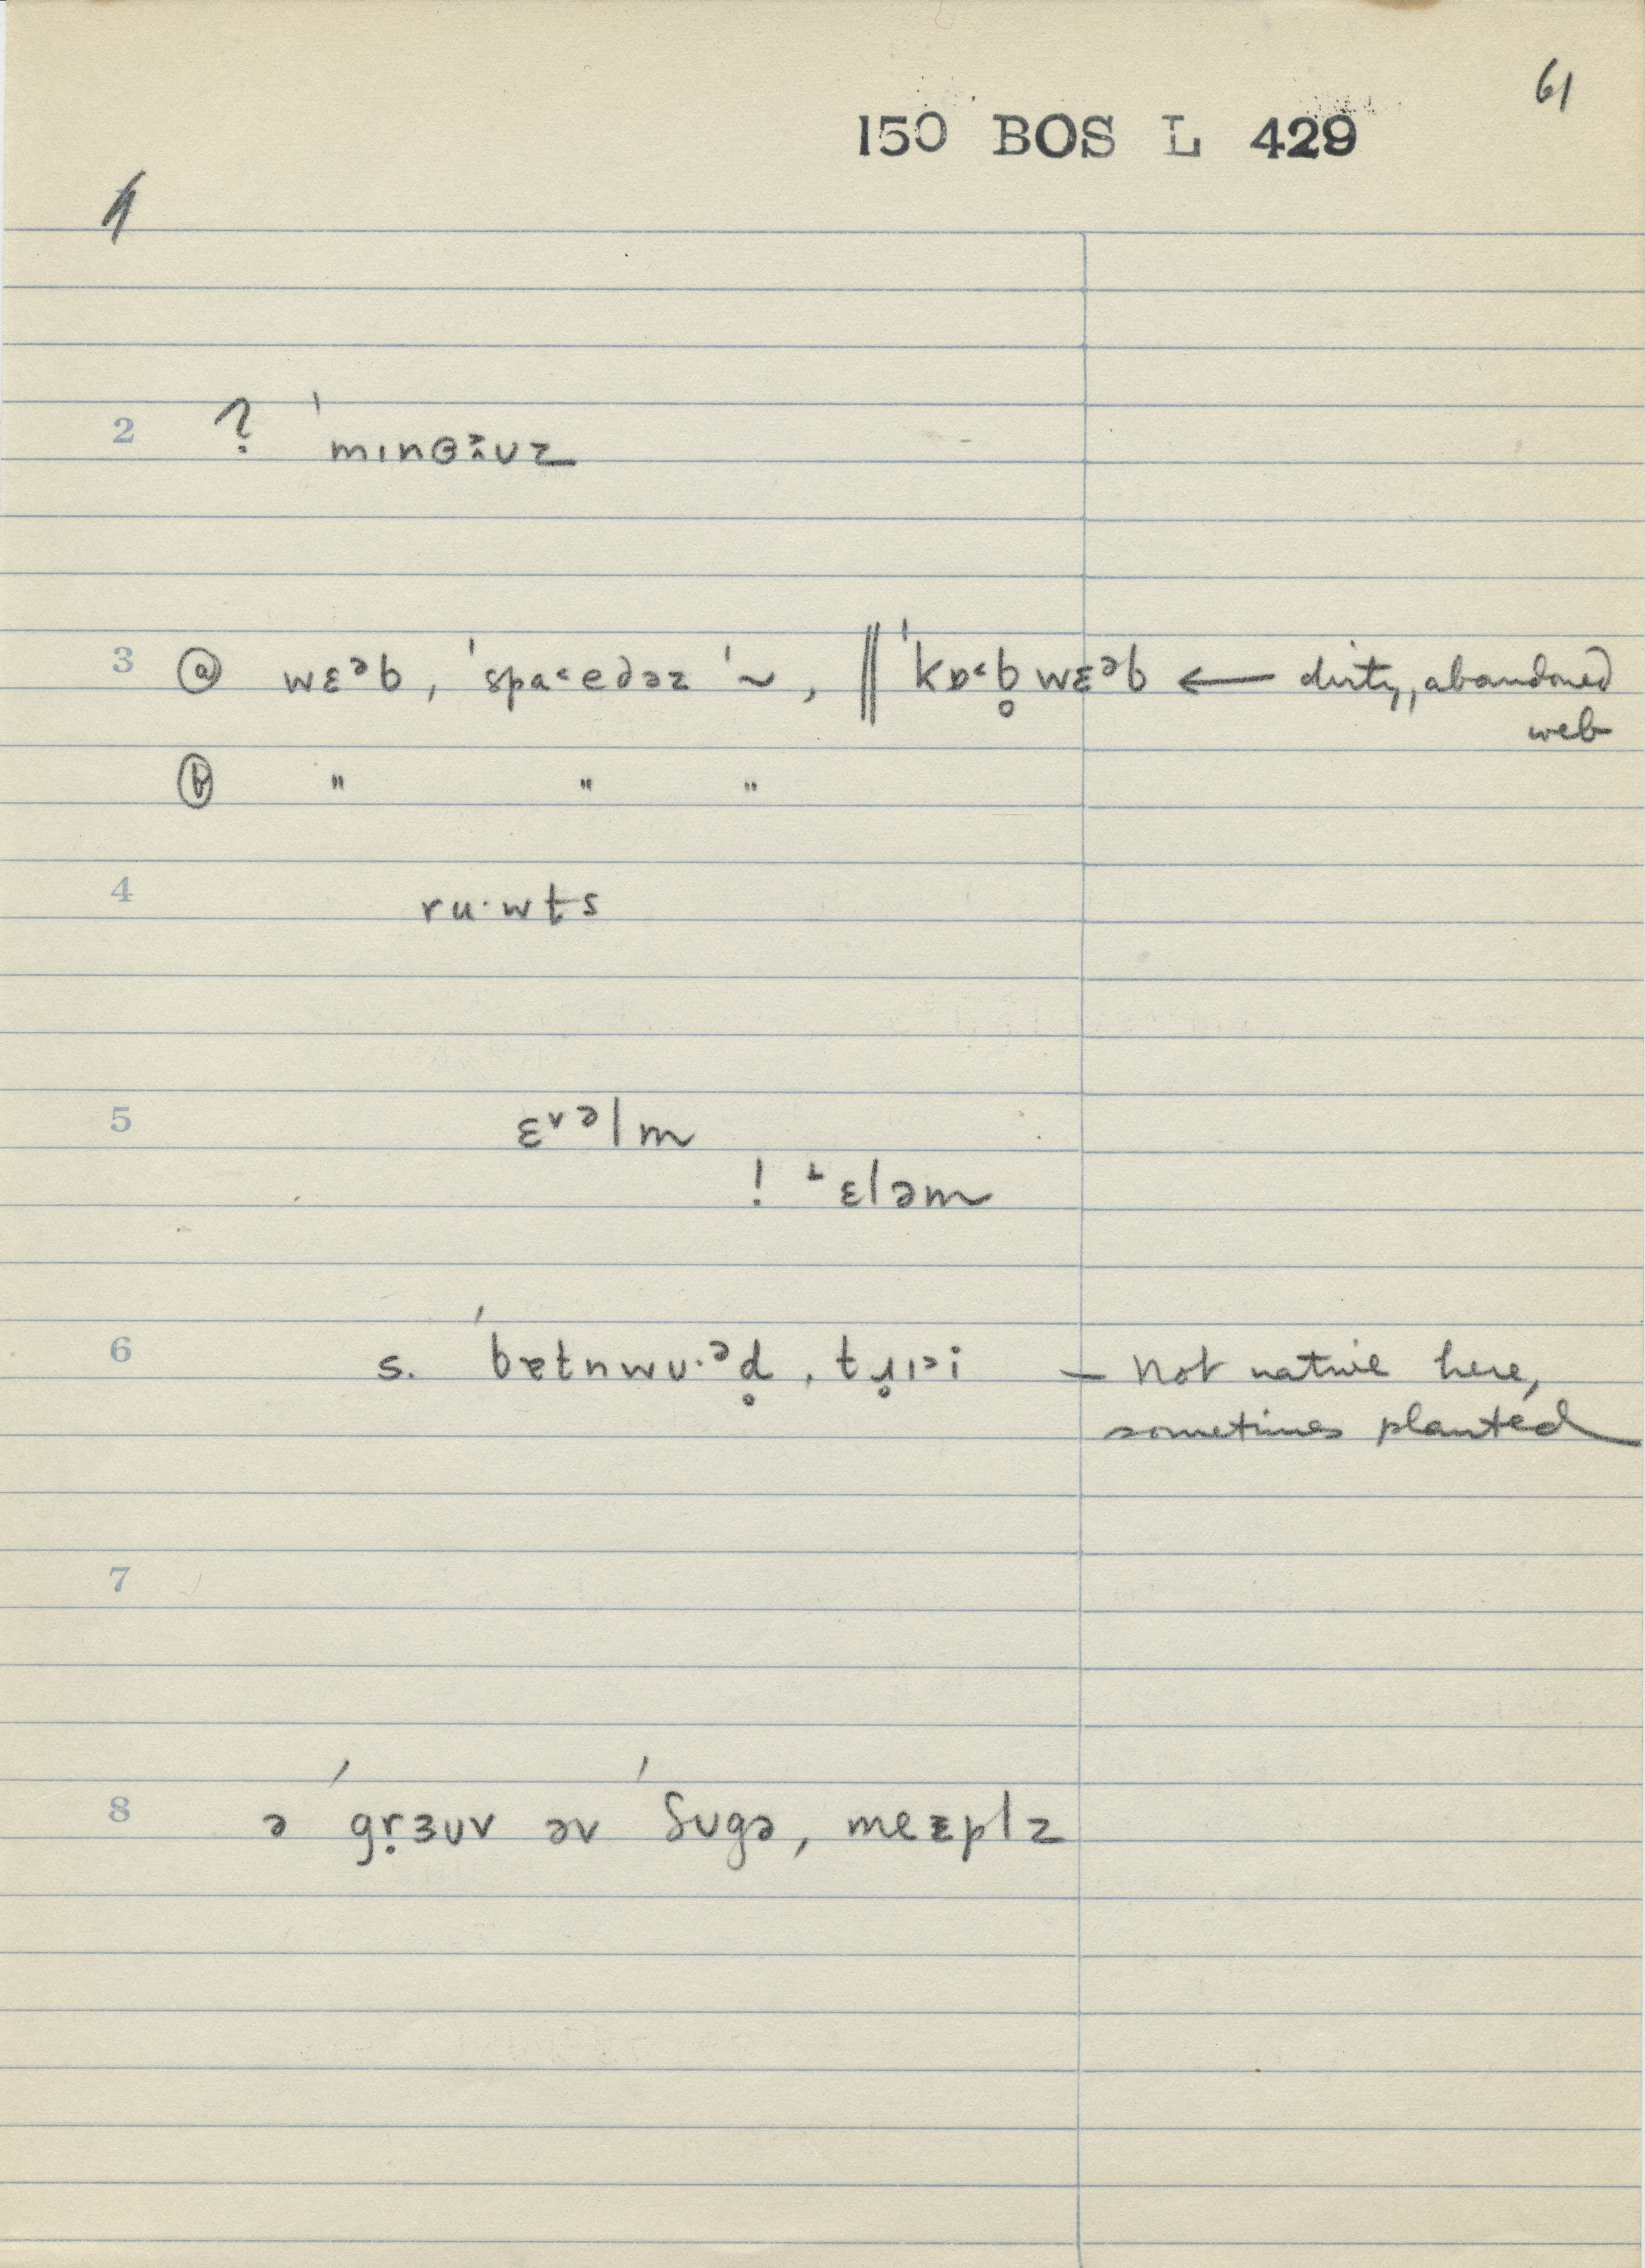 61
150 BOS L 429
2 ? ˈmɪnɵɜ̃ʊz
3 ⓐ wɛᵊb, ˈspa˂edəz ˈ~, ‖ ˈkɒ˂b̥wɛᵊb ← dirty, abandoned
web
ⓑ " " "
4 ru·wt̬s
5 ɛ˅ᵊlm
! ˔ɛləm
6 s. ˈbɐtnwʊ·ᵊd̥, tɹ̥ɪ˃i – Not native here,
sometimes planted
7
8 ə ˈgṛɜʊv əv ˈʃʊgə, meɛplz